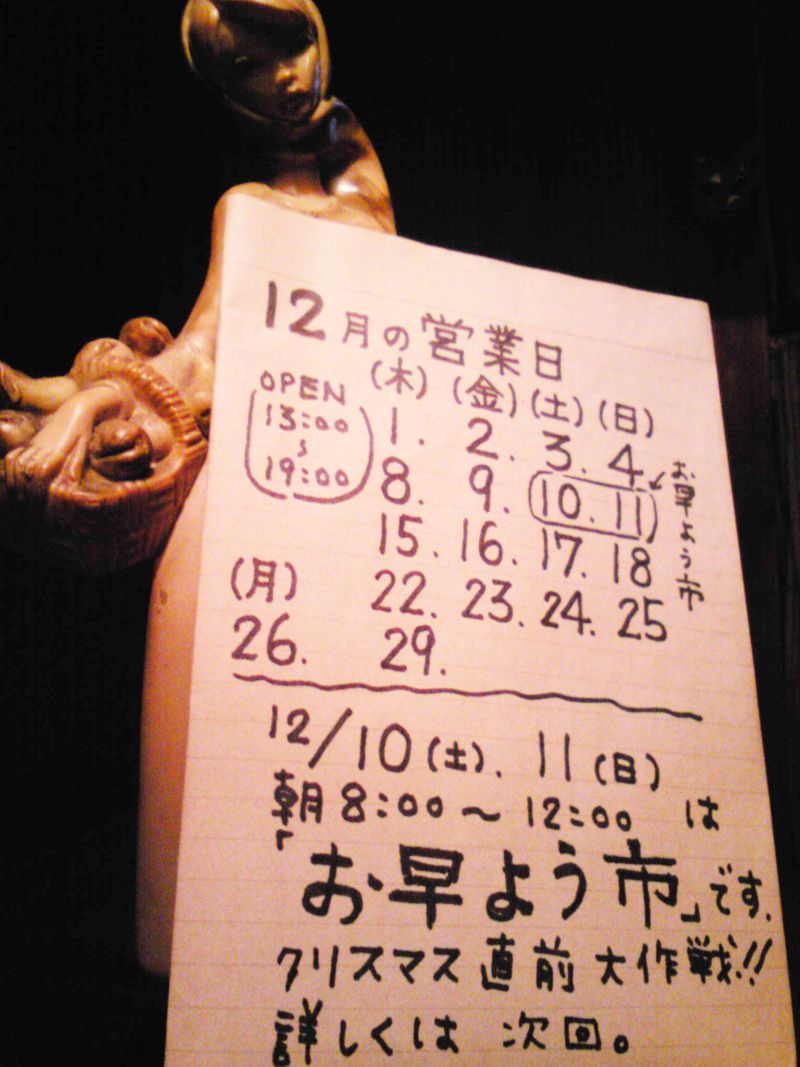 12月の営業日
OPEN
13:00
〜
19:00
(木) (金) (土) (日)
1. 2. 3. 4
8. 9. 10. 11
お早よう市
15. 16. 17. 18
22. 23. 24. 25
(月)
26. 29.
12/10(土). 11(日)
朝8:00〜12:00 は
「お早よう市」です.
クリスマス直前大作戦!!
詳しくは 次回。